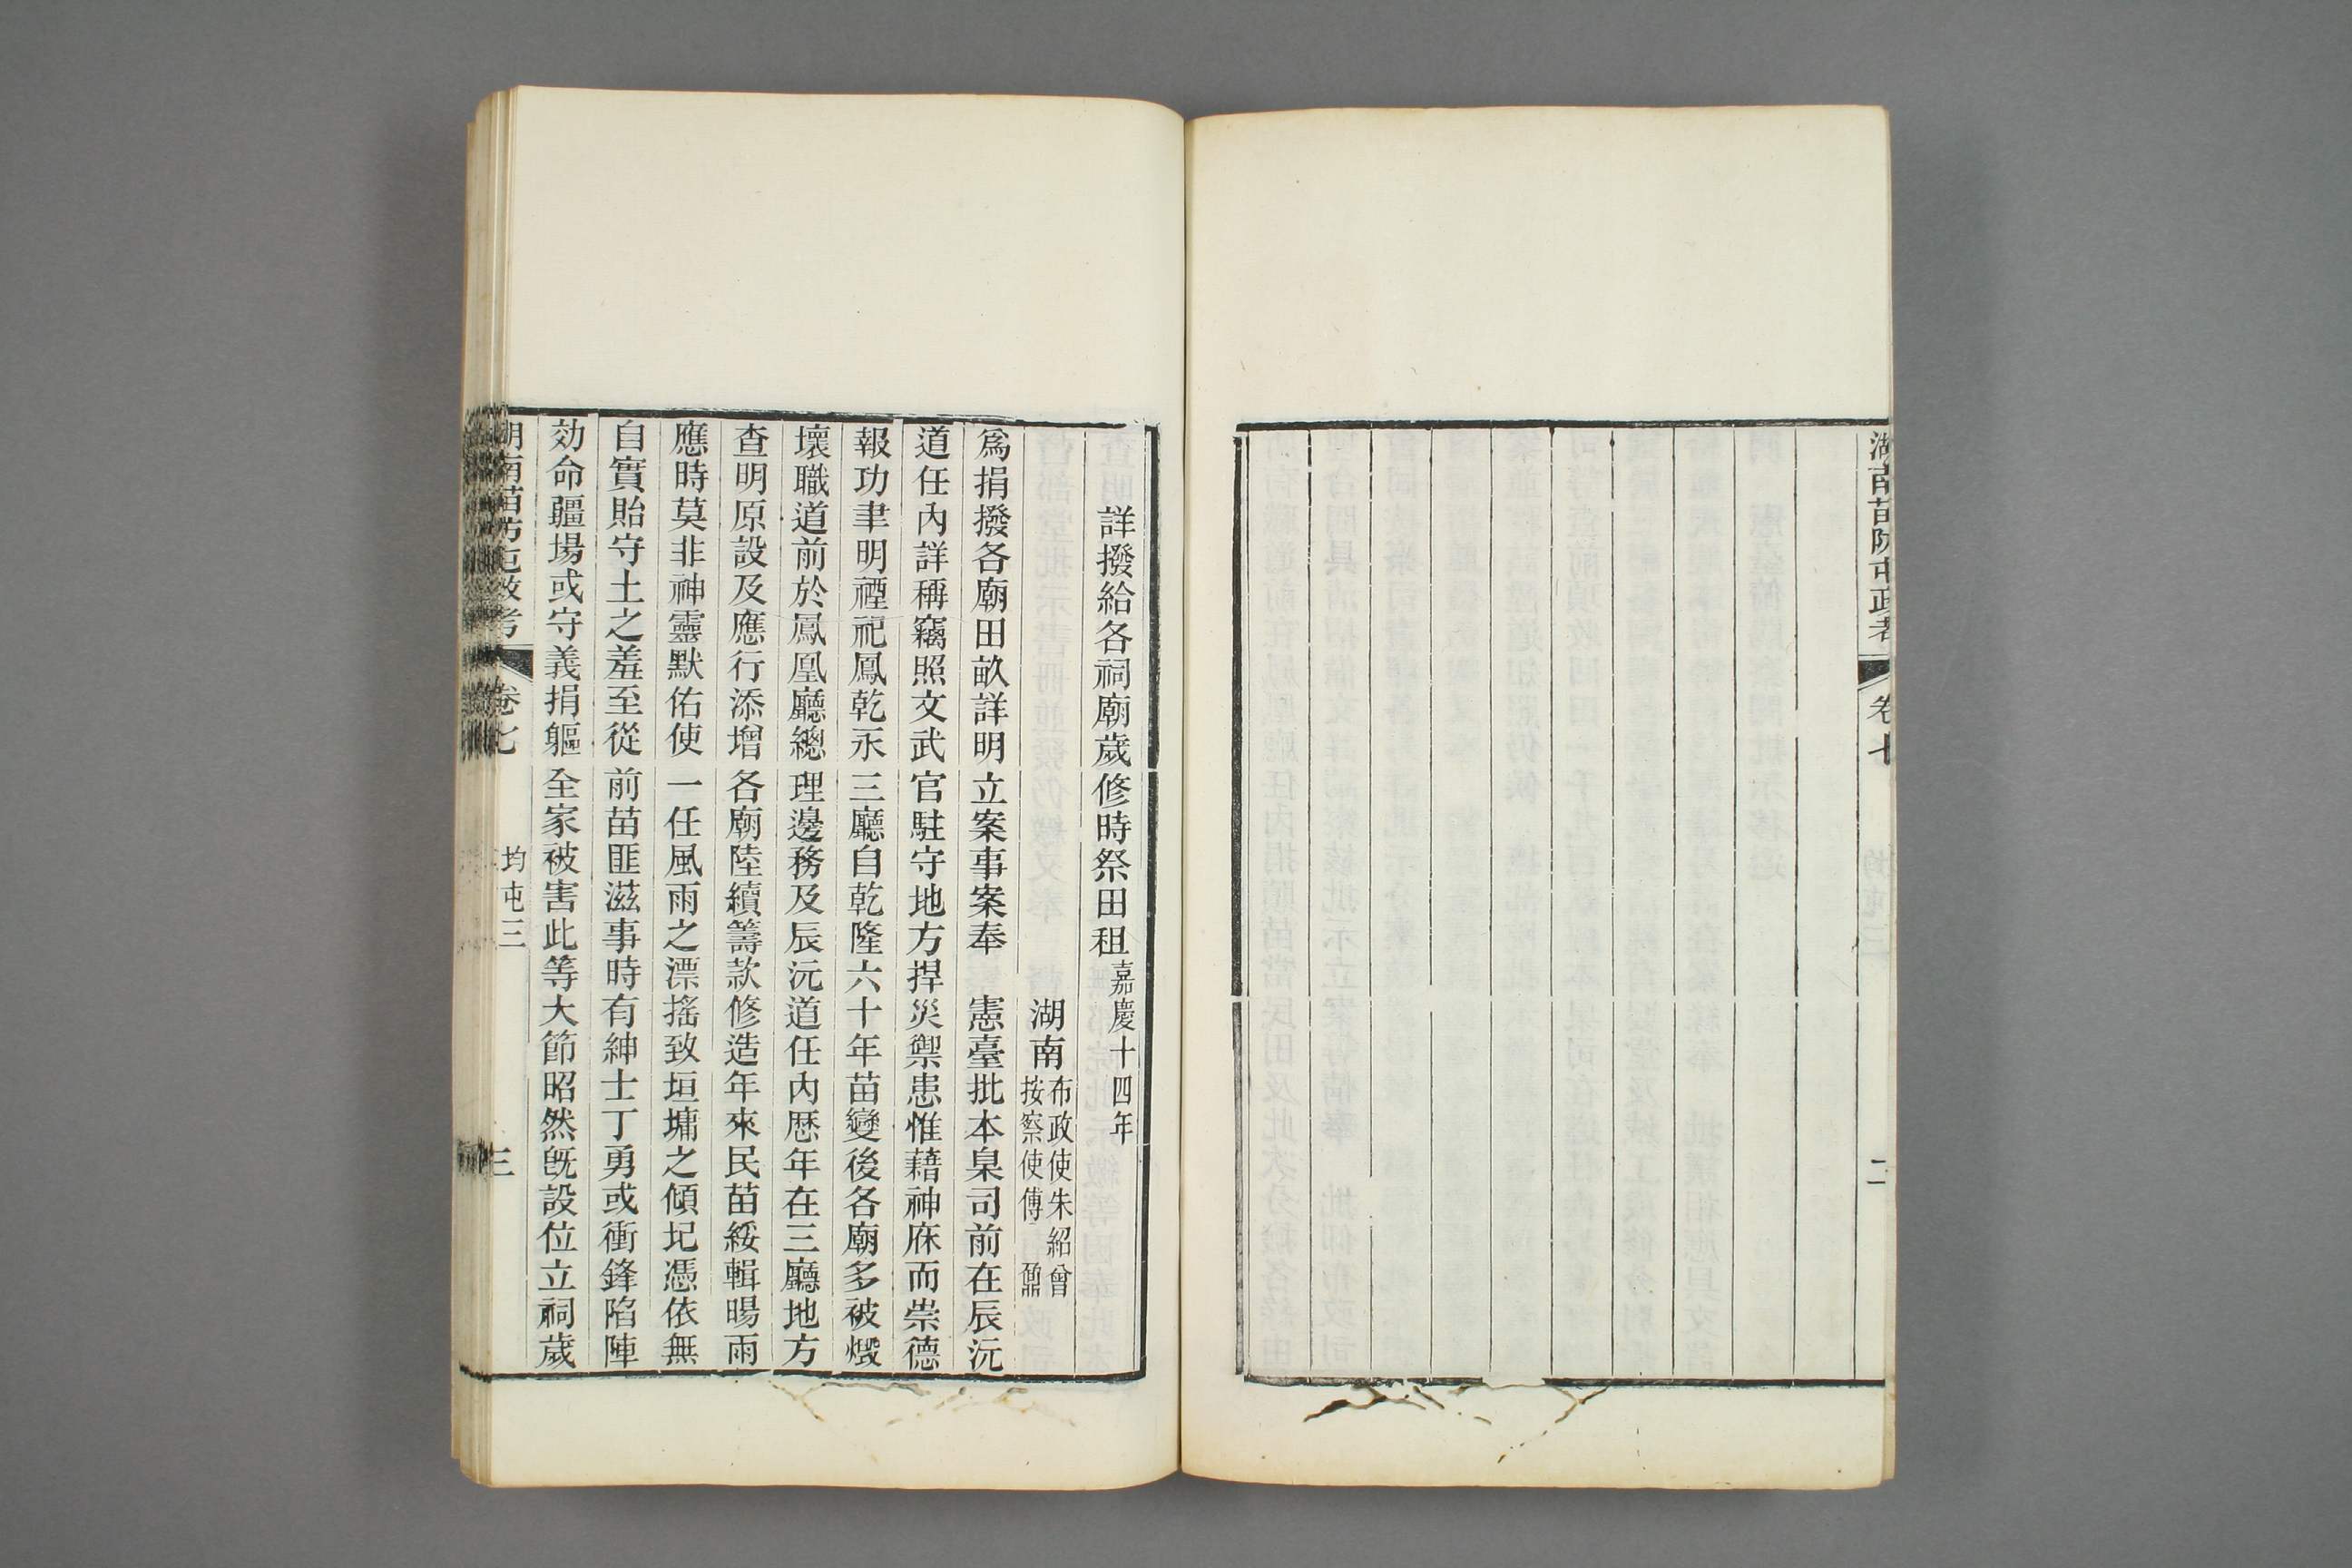 湖南苗防屯政考
卷七
二
詳撥給各祠廟歲修時祭田租嘉慶十四年
湖南布政使朱紹曾
按察使傅鼐
爲捐撥各廟田畝詳明立案事案奉 憲臺批本臬司前在辰沅
道任內詳稱竊照文武官駐守地方捍災禦患惟藉神庥而崇德
報功聿明禋祀鳳乾永三廳自乾隆六十年苗變後各廟多被燬
壞職道前於鳳凰廳總理邊務及辰沅道任內歷年在三廳地方
查明原設及應行添增各廟陸續籌款修造年來民苗綏輯暘雨
應時莫非神靈默佑使一任風雨之漂搖致垣墉之傾圮憑依無
自實貽守土之羞至從前苗匪滋事時有紳士丁勇或衝鋒陷陣
効命疆場或守義捐軀全家被害此等大節昭然旣設位立祠歲
湖南苗防屯政考
卷七
均屯三
三